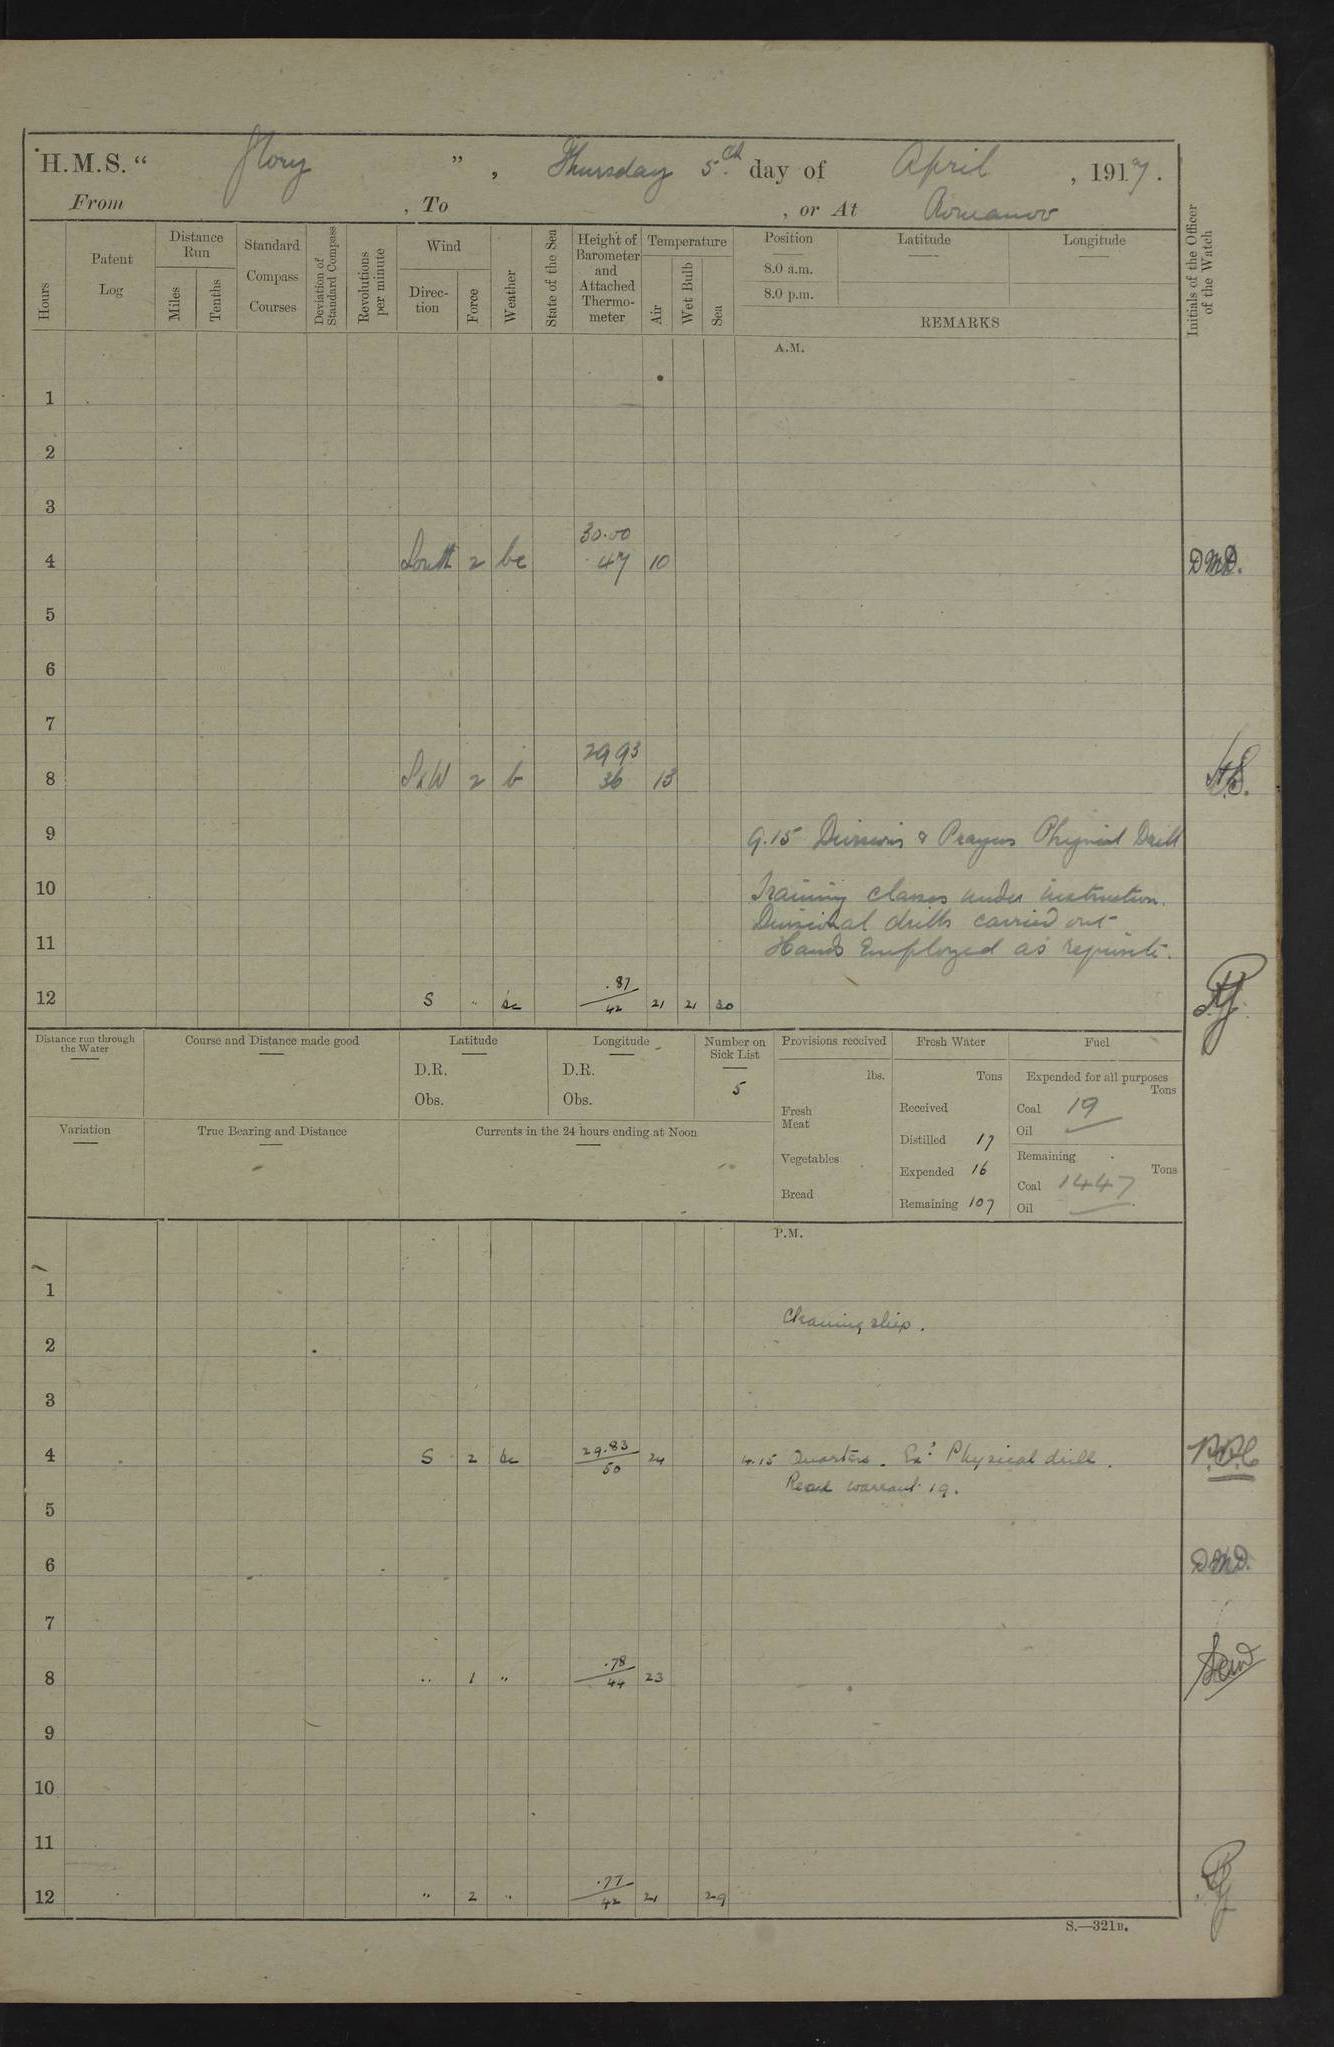 H.M.S. " Glory ", Thursday 5th day of April, 1917.
From , To , or At Romanov
Hours
Patent Log
Distance Run
Miles
Tenths
Standard Compass Courses
Deviation of Standard Compass
Revolutions per minute
Wind
Direction
Force
Weather
State of the Sea
Height of Barometer and Attached Thermometer
Temperature
Air
Wet Bulb
Sea
Position
8.0 a.m.
8.0 p.m.
Latitude
Longitude
REMARKS
Initials of the Officer of the Watch
A.M.
1
2
3
30.00
4 South 2 bc 47 10 DMD.
5
6
7
29 93
8 SxW 2 b 36 13
9 9.15 Divisions & Prayers Physical Drill
10 Training classes under instruction.
Divisional drills carried out
11 Hands Employed as requisite.
.87
12 S " bc 42 21 21 30
Distance run through the Water
Course and Distance made good
Latitude
D.R.
Obs.
Longitude
D.R.
Obs.
Number on Sick List
5
Variation
True Bearing and Distance
Currents in the 24 hours ending at Noon
Provisions received
lbs.
Fresh Meat
Vegetables
Bread
Fresh Water
Tons
Received
Distilled 17
Expended 16
Remaining 107
Fuel
Expended for all purposes
Tons
Coal 19
Oil
Remaining
Tons
Coal 1447
Oil
P.M.
1
Cleaning ship.
2
3
29.83
4 S 2 bc 50 24 4.15 Quarters. Ex: Physical drill.
Read warrant 19.
5
6 DMD.
7
.78
8 " 1 " 44 23
9
10
11
.77
12 " 2 " 42 21 29
S.—321B.